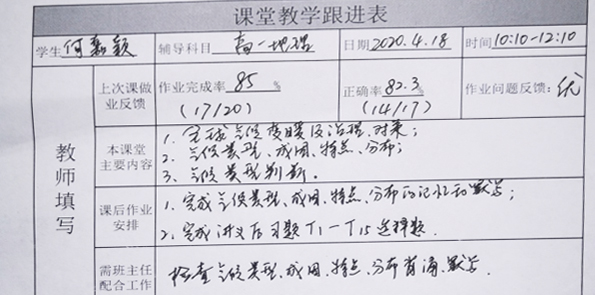 课堂教学跟进表
学生 何嘉颖 辅导科目 高一地理 日期 2020.4.18 时间 10:10-12:10
上次课做业反馈 作业完成率 85 % (17/20) 正确率 82.3 % (14/17) 作业问题反馈: 优
教师填写
本课堂主要内容
1. 全球气候变暖及治理、对策;
2. 气候类型、成因、特点、分布;
3. 气候类型判断.
课后作业安排
1. 完成气候类型、成因、特点、分布的记忆和默写;
2. 完成讲义后习题T1—T15选择题.
需班主任配合工作
检查气候类型、成因、特点、分布背诵、默写.